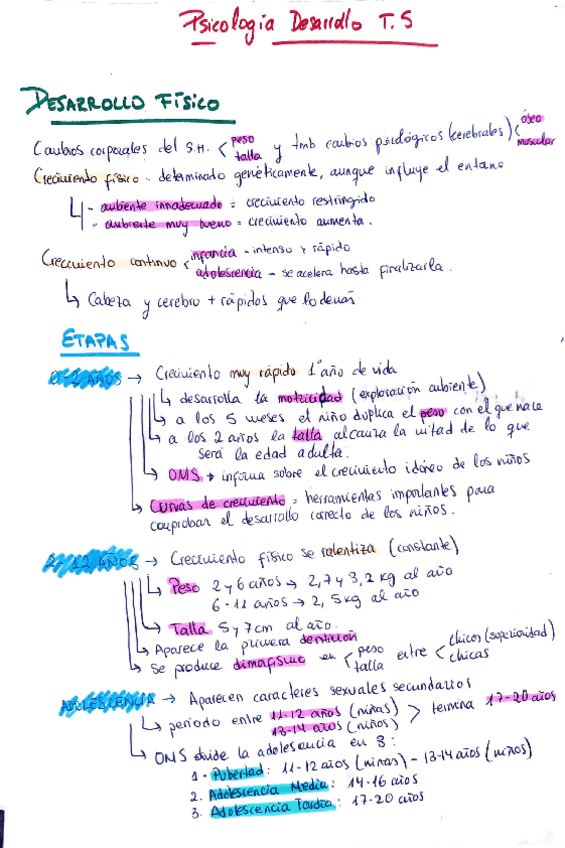 Psicología Desarrollo T.5
DESARROLLO FÍSICO
Cambios corporales del S.H. < peso talla y tmb cambios psicológicos (cerebrales) < óseo muscular
Crecimiento físico - determinado genéticamente, aunque influye el entorno
- ambiente innadecuado = crecimiento restringido
- ambiente muy bueno = crecimiento aumenta.
Crecimiento continuo < infancia - intenso y rápido
adolescencia - se acelera hasta finalizarla.
↳ Cabeza y cerebro + rápidos que lo demás
ETAPAS
0-2 AÑOS → Crecimiento muy rápido 1º año de vida
↳ desarrolla la motricidad (exploración ambiente)
↳ a los 5 meses el niño duplica el peso con el que nace
↳ a los 2 años la talla alcanza la mitad de lo que
será la edad adulta.
↳ OMS → informa sobre el crecimiento idóneo de los niños
↳ Curvas de crecimiento = herramientas importantes para
comprobar el desarrollo correcto de los niños.
2-12 AÑOS → Crecimiento físico se ralentiza (constante)
↳ Peso 2 y 6 años → 2,7 y 3,2 kg al año
6-11 años → 2,5 kg al año
↳ Talla 5 y 7cm al año.
↳ Aparece la primera dentición
↳ Se produce dimofismo en < peso talla entre < chicos (superioridad) chicas
ADOLESCENCIA → Aparecen caracteres sexuales secundarios
↳ periodo entre 11-12 años (niñas) > termina 17-20 años
13-14 años (niños)
↳ OMS divide la adolescencia en 3:
1- Pubertad: 11-12 años (niñas) - 13-14 años (niños)
2. Adolescencia Media: 14-16 años
3. Adolescencia Tardía: 17-20 años